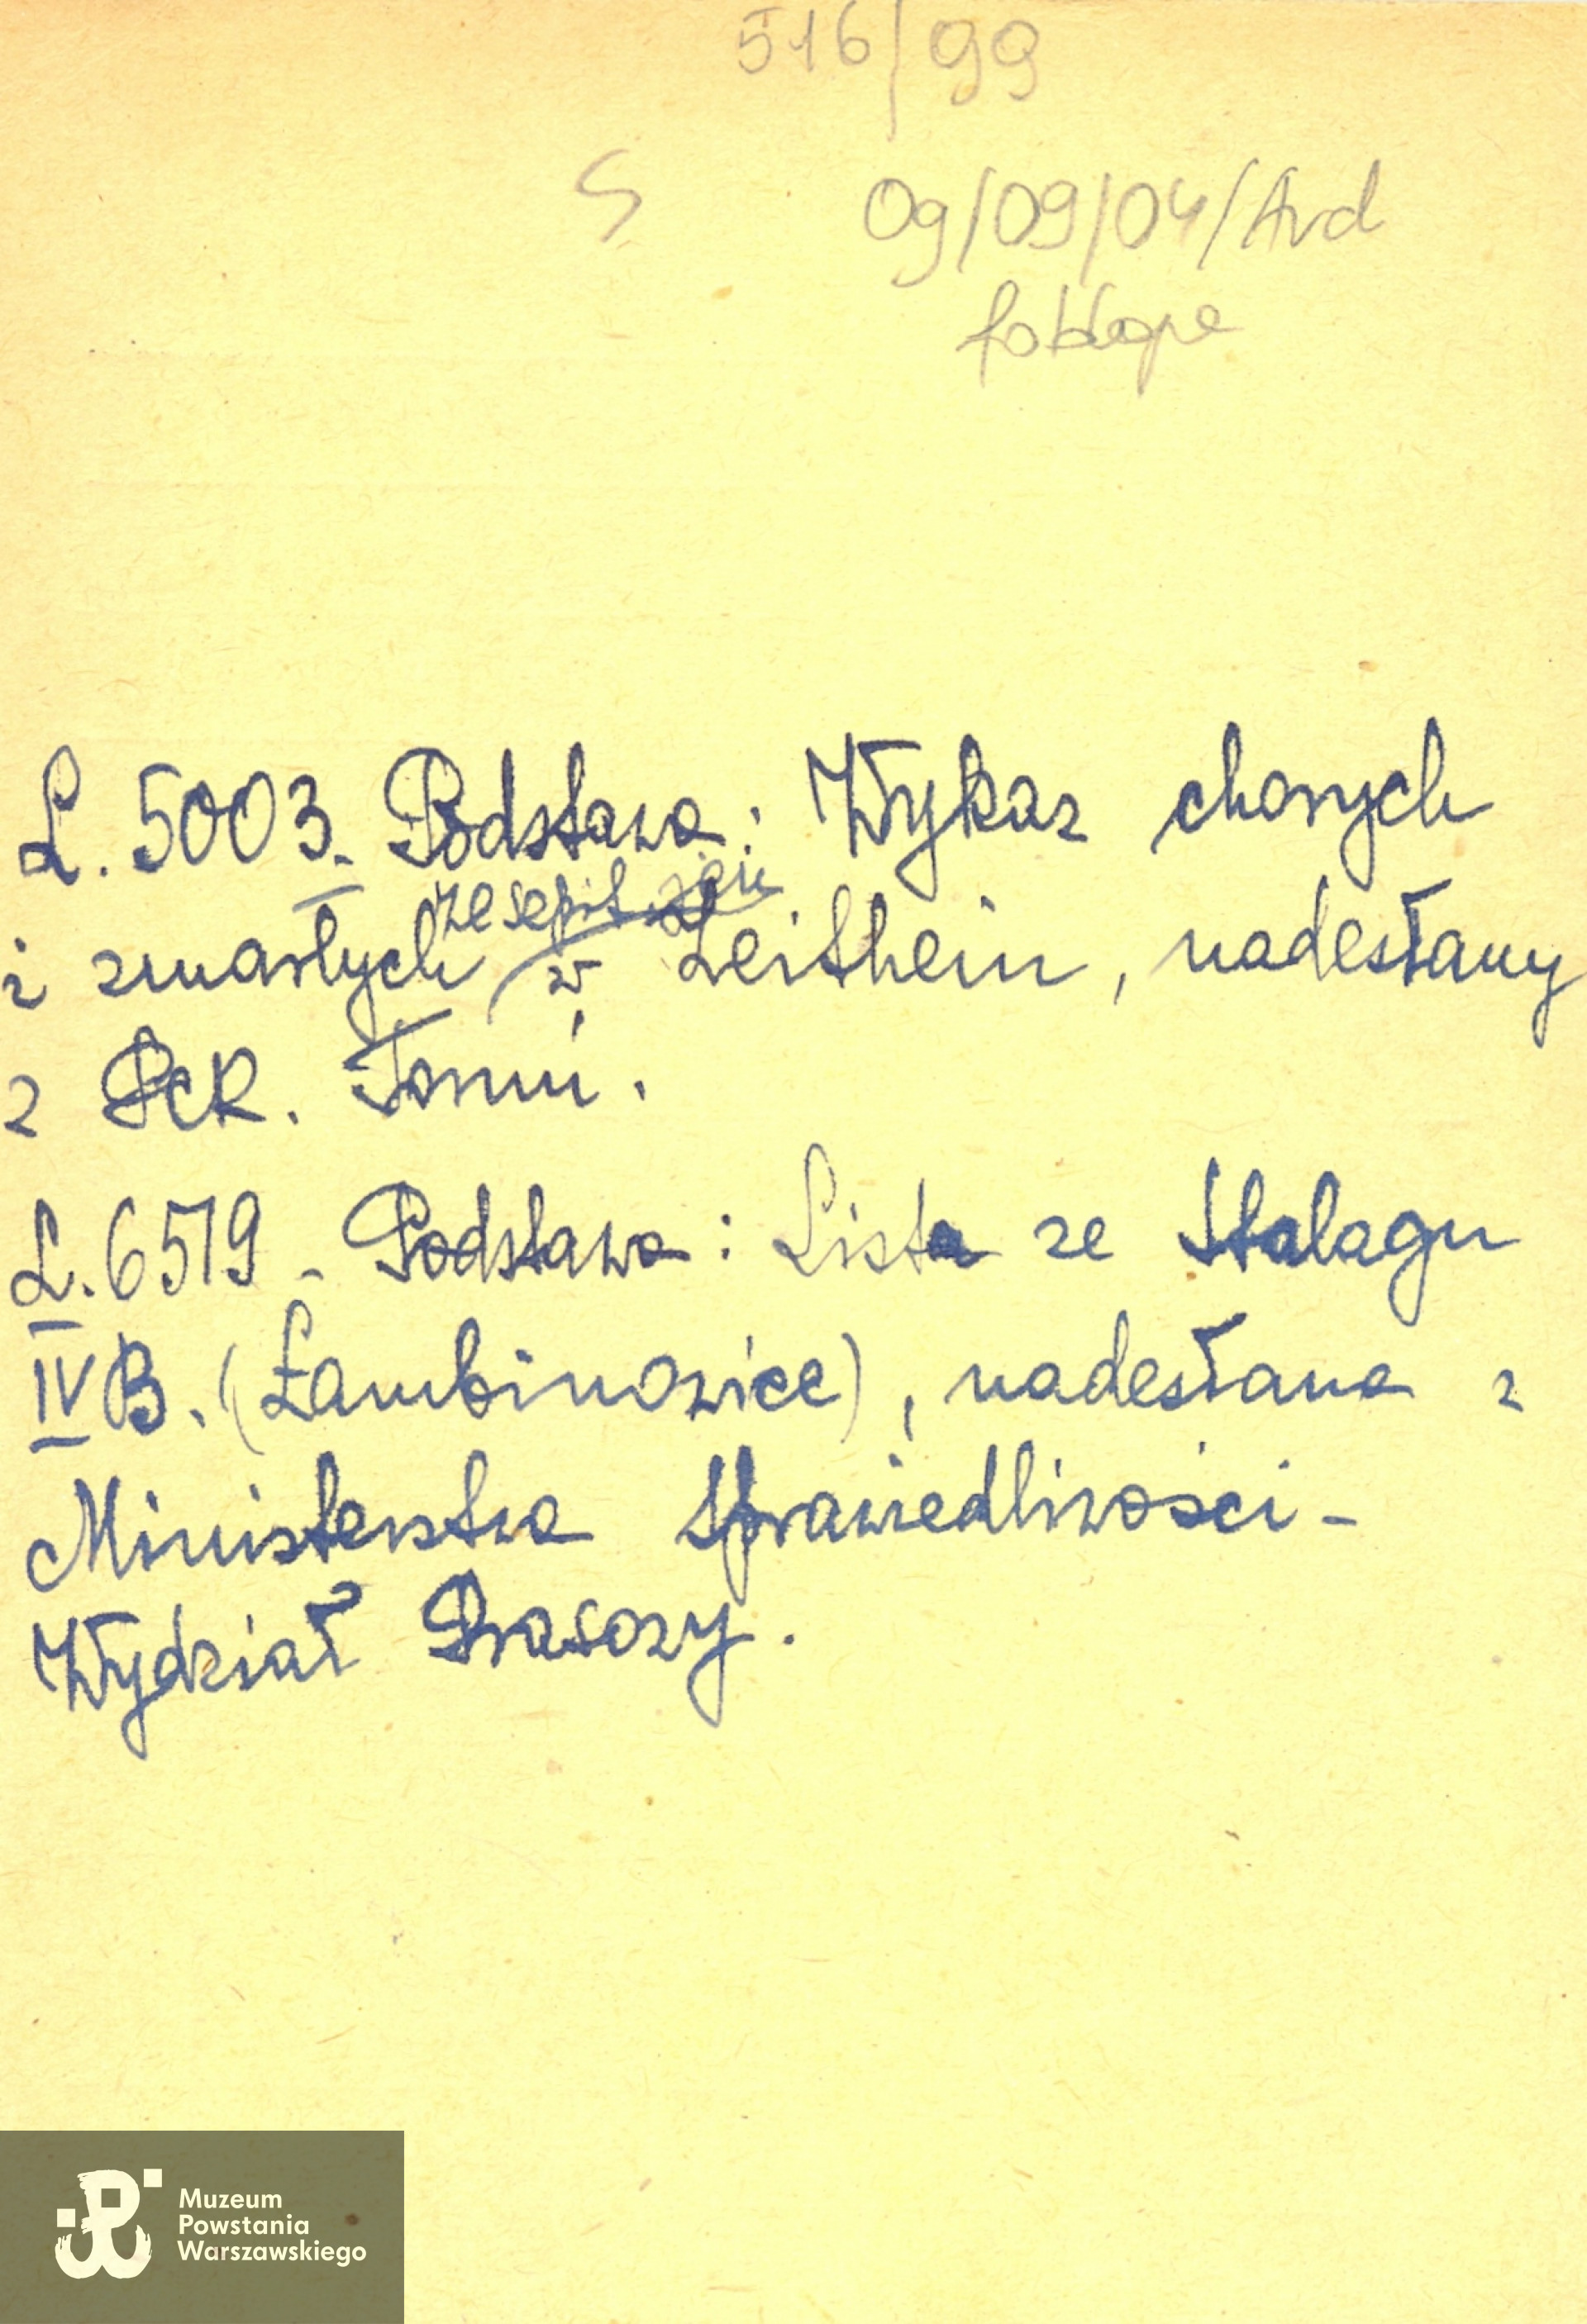 516/99
S 09/09/04/Avd
L. 5003. Podstawa: Wykaz chorych
ze szpit.
i zmarłych w Zeithein, nadesłany
z PCK. Toruń.
L. 6519 - Podstawa: Lista ze Stalagu
IV B. (Łambinowice), nadesłana z
Ministerstwa Sprawiedliwości -
Wydział Prasowy.
Muzeum
Powstania
Warszawskiego